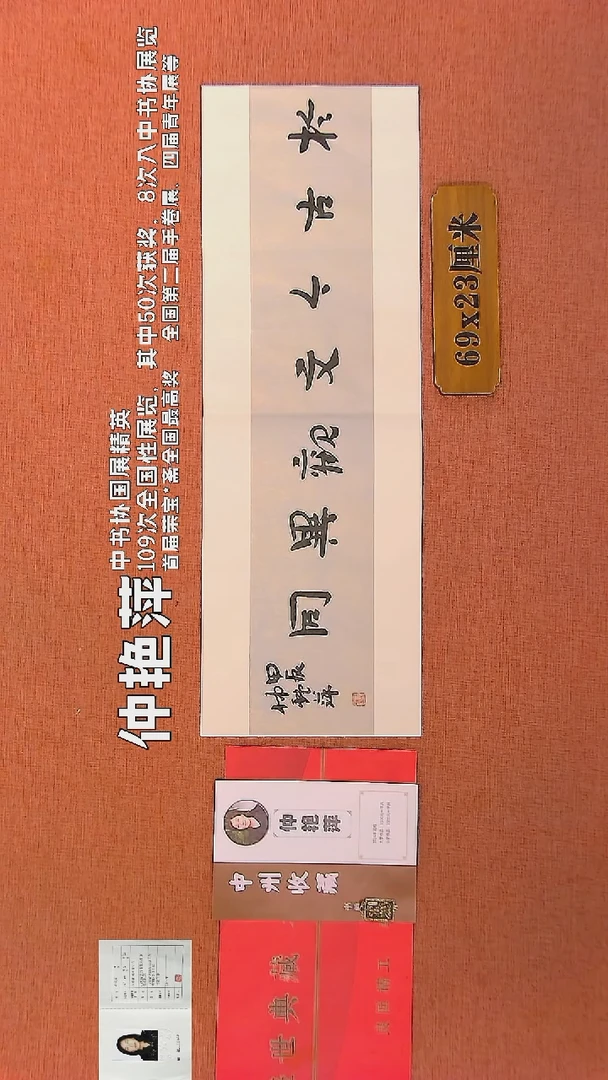 仲艳萍
中书协国展精英
109次全国性展览，其中50次获奖，8次入中书协展览
首届荣宝·斋全国最高奖 全国第二届手卷展、四届青年展等
於古今文觀異同
甲辰
仲艷萍
69x23厘米
仲艳萍
中州收藏
世典藏